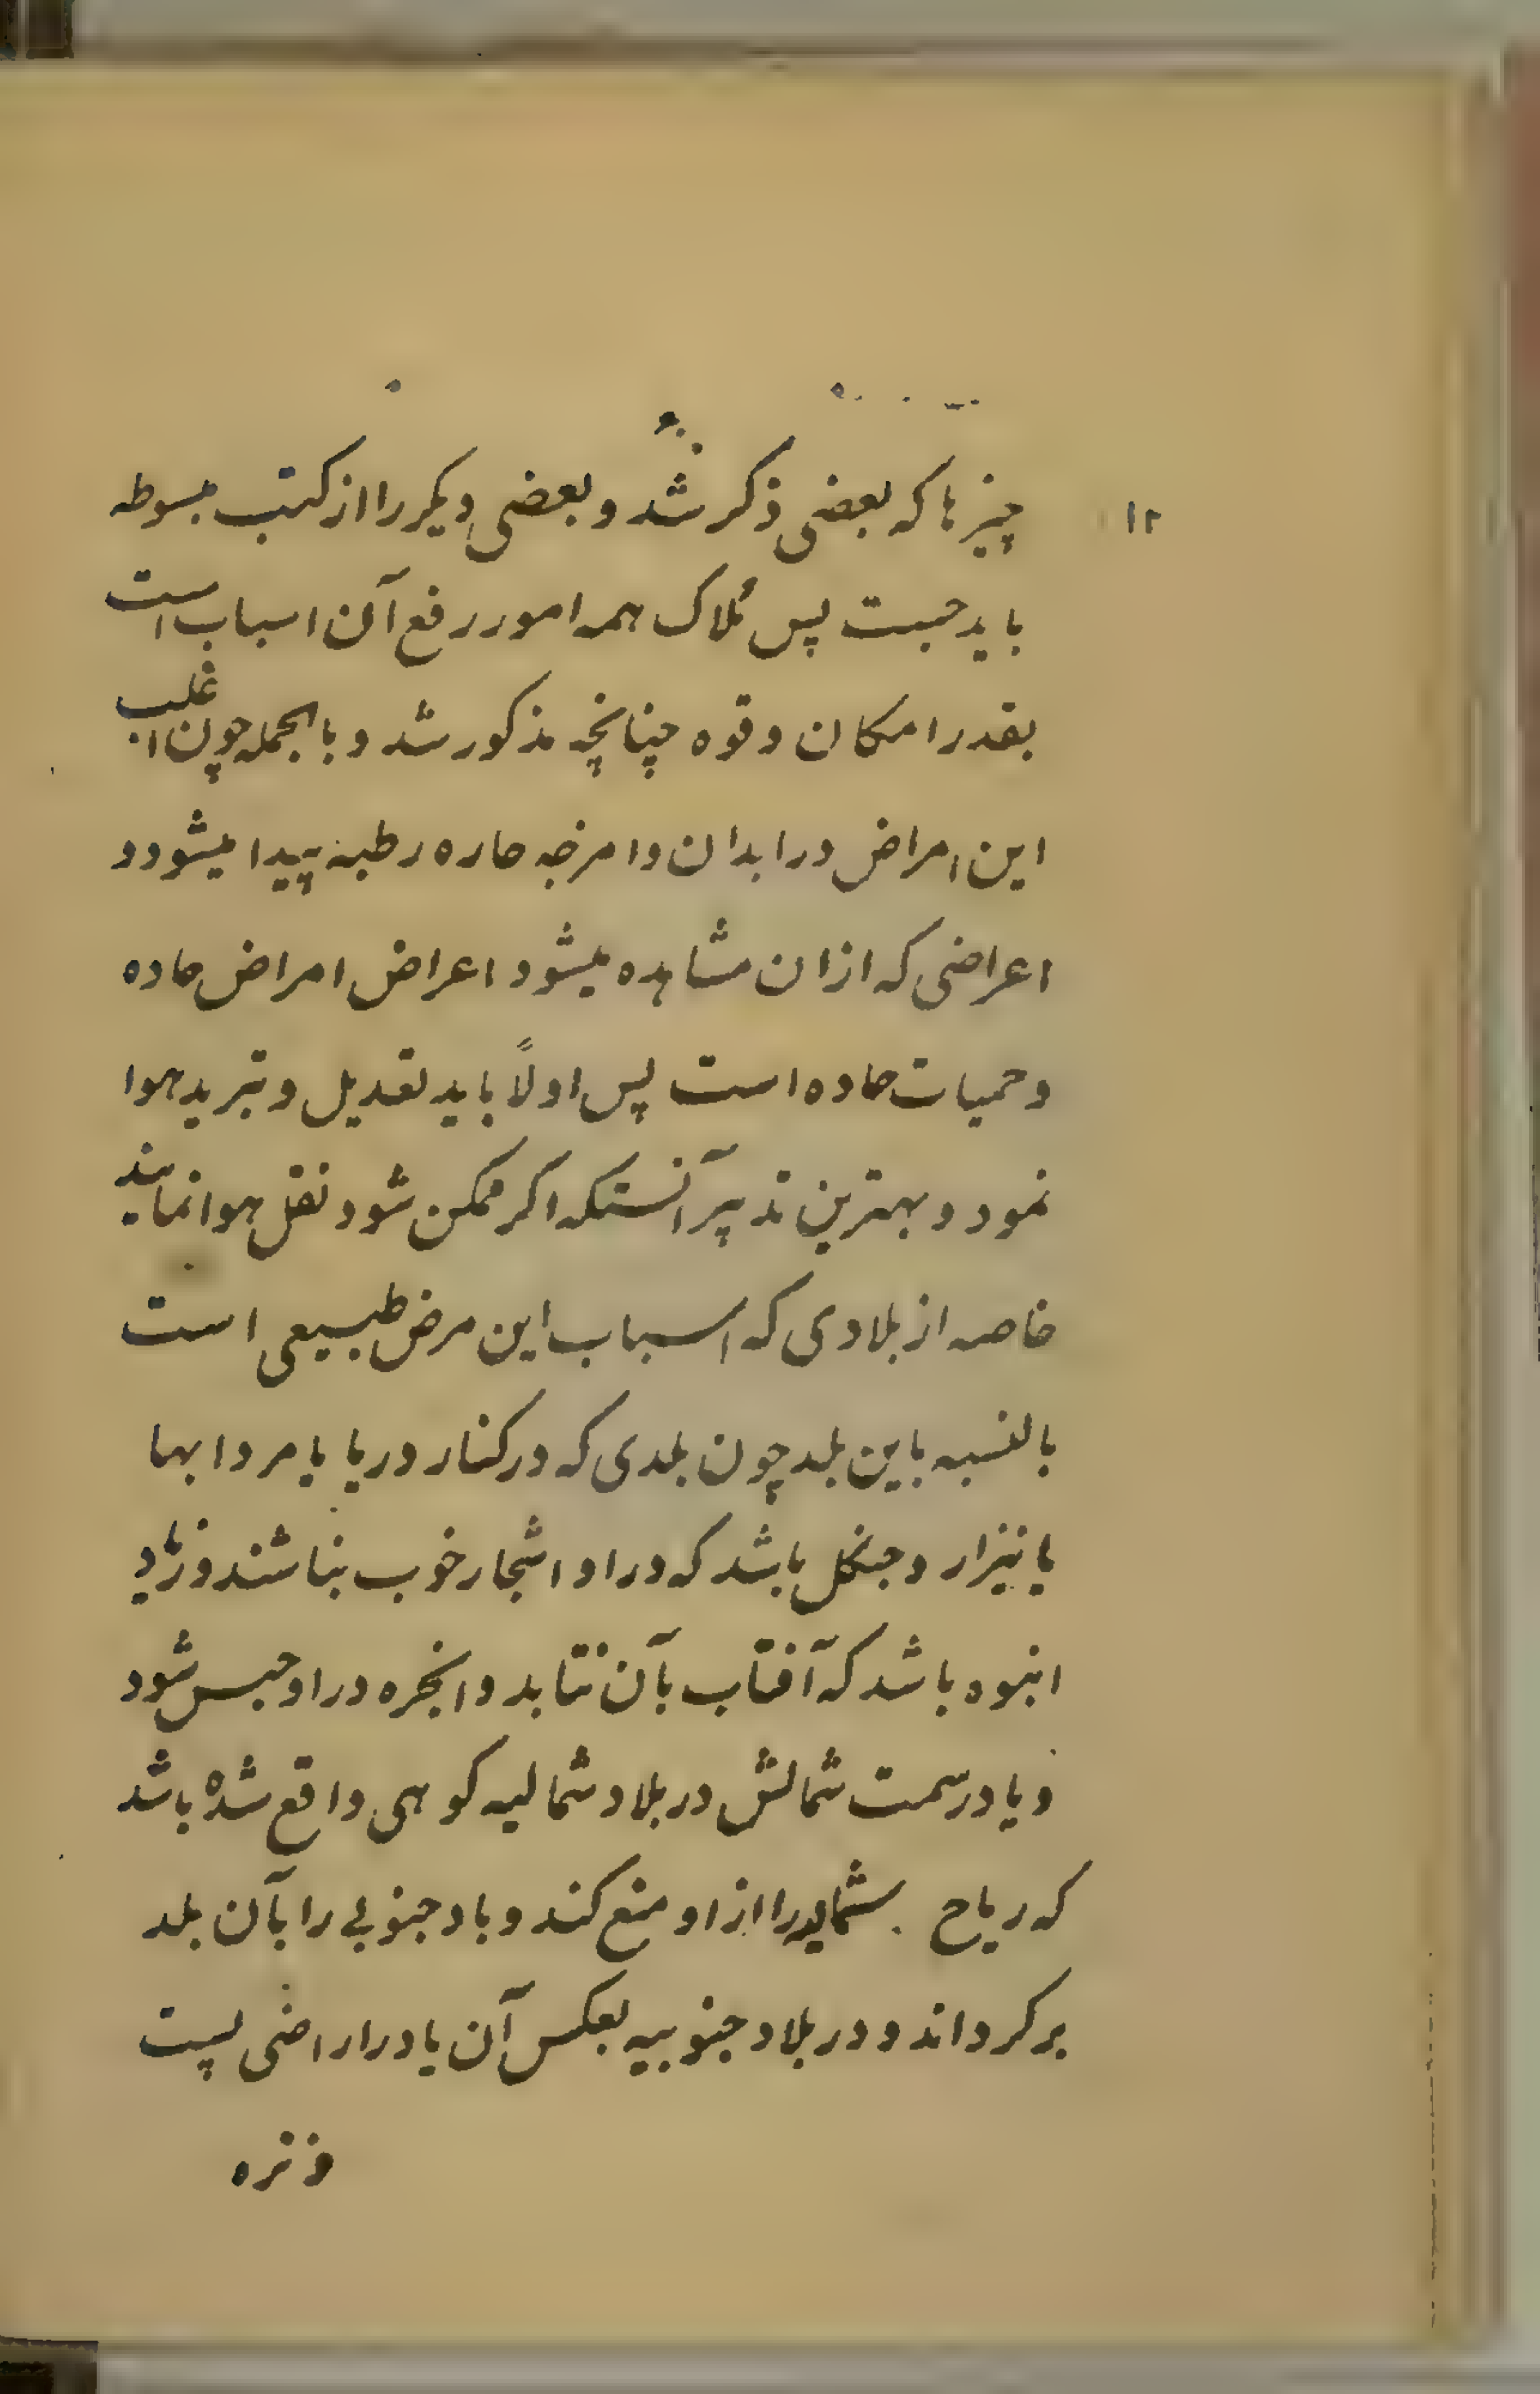 ۱۲
چیزها که بعضی ذکر شد و بعضی دیکر را از کتب مبسوطه
باید جست پس مُلاک همه امور رفع آن اسباب است
بقدر امکان و قوه چنانچه مذکور شد و بالجمله چون اغلب
این امراض در ابدان و امزجه حاره رطبه پیدا میشود و
اعراضی که از ان مشاهده میشود اعراض امراض حاده
و حمیات حاده است پس اولاً باید تعدیل و تبرید هوا
نمود و بهترین تدبیر آنستکه اکر ممکن شود نقل هوا نمایند
خاصه از بلادی که اسباب این مرض طبیعی است
بالنسبه باین بلد چون بلدی که در کنار دریا یا مردابها
یا نیزار و جنکل باشد که در او اشجار خوب نباشند و زیاد
انبوه باشد که آفتاب بآن نتابد و ابخره در او حبس شود
و یا در سمت شمالش در بلاد شمالیه کوهی واقع شده باشد
که ریاح شمالیه را از او منع کند و باد جنوبی را بآن بلد
برکرداند و در بلاد جنوبیه بعکس آن یا در اراضی پست